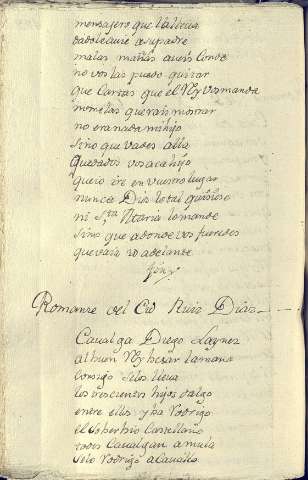 mensagero que las lleva
dadole cure a su padre
malas mañas aueis Conde
no vos las puedo quitar
que Cartas que el Rey vos manda
no me las querais mostrar
no era nada mi hijo
sino que vades alla
quedados vos aca hijo
que io ire en vuestro lugar
nunca Dios lo tal quisiese
ni Sta Maria lo mande
sino que adonde vos fueredes
que vaia io adelante
fin
Romanze del Cid Ruis Dias
Caualga Diego Laynes
al buen Rey besar la mano
consigo selos lleua
los trescientos hijos dalgo
entre ellos yba Rodrigo
el soberbio Castellano
todos Caualgan a mula
solo Rodrigo a Cauallo